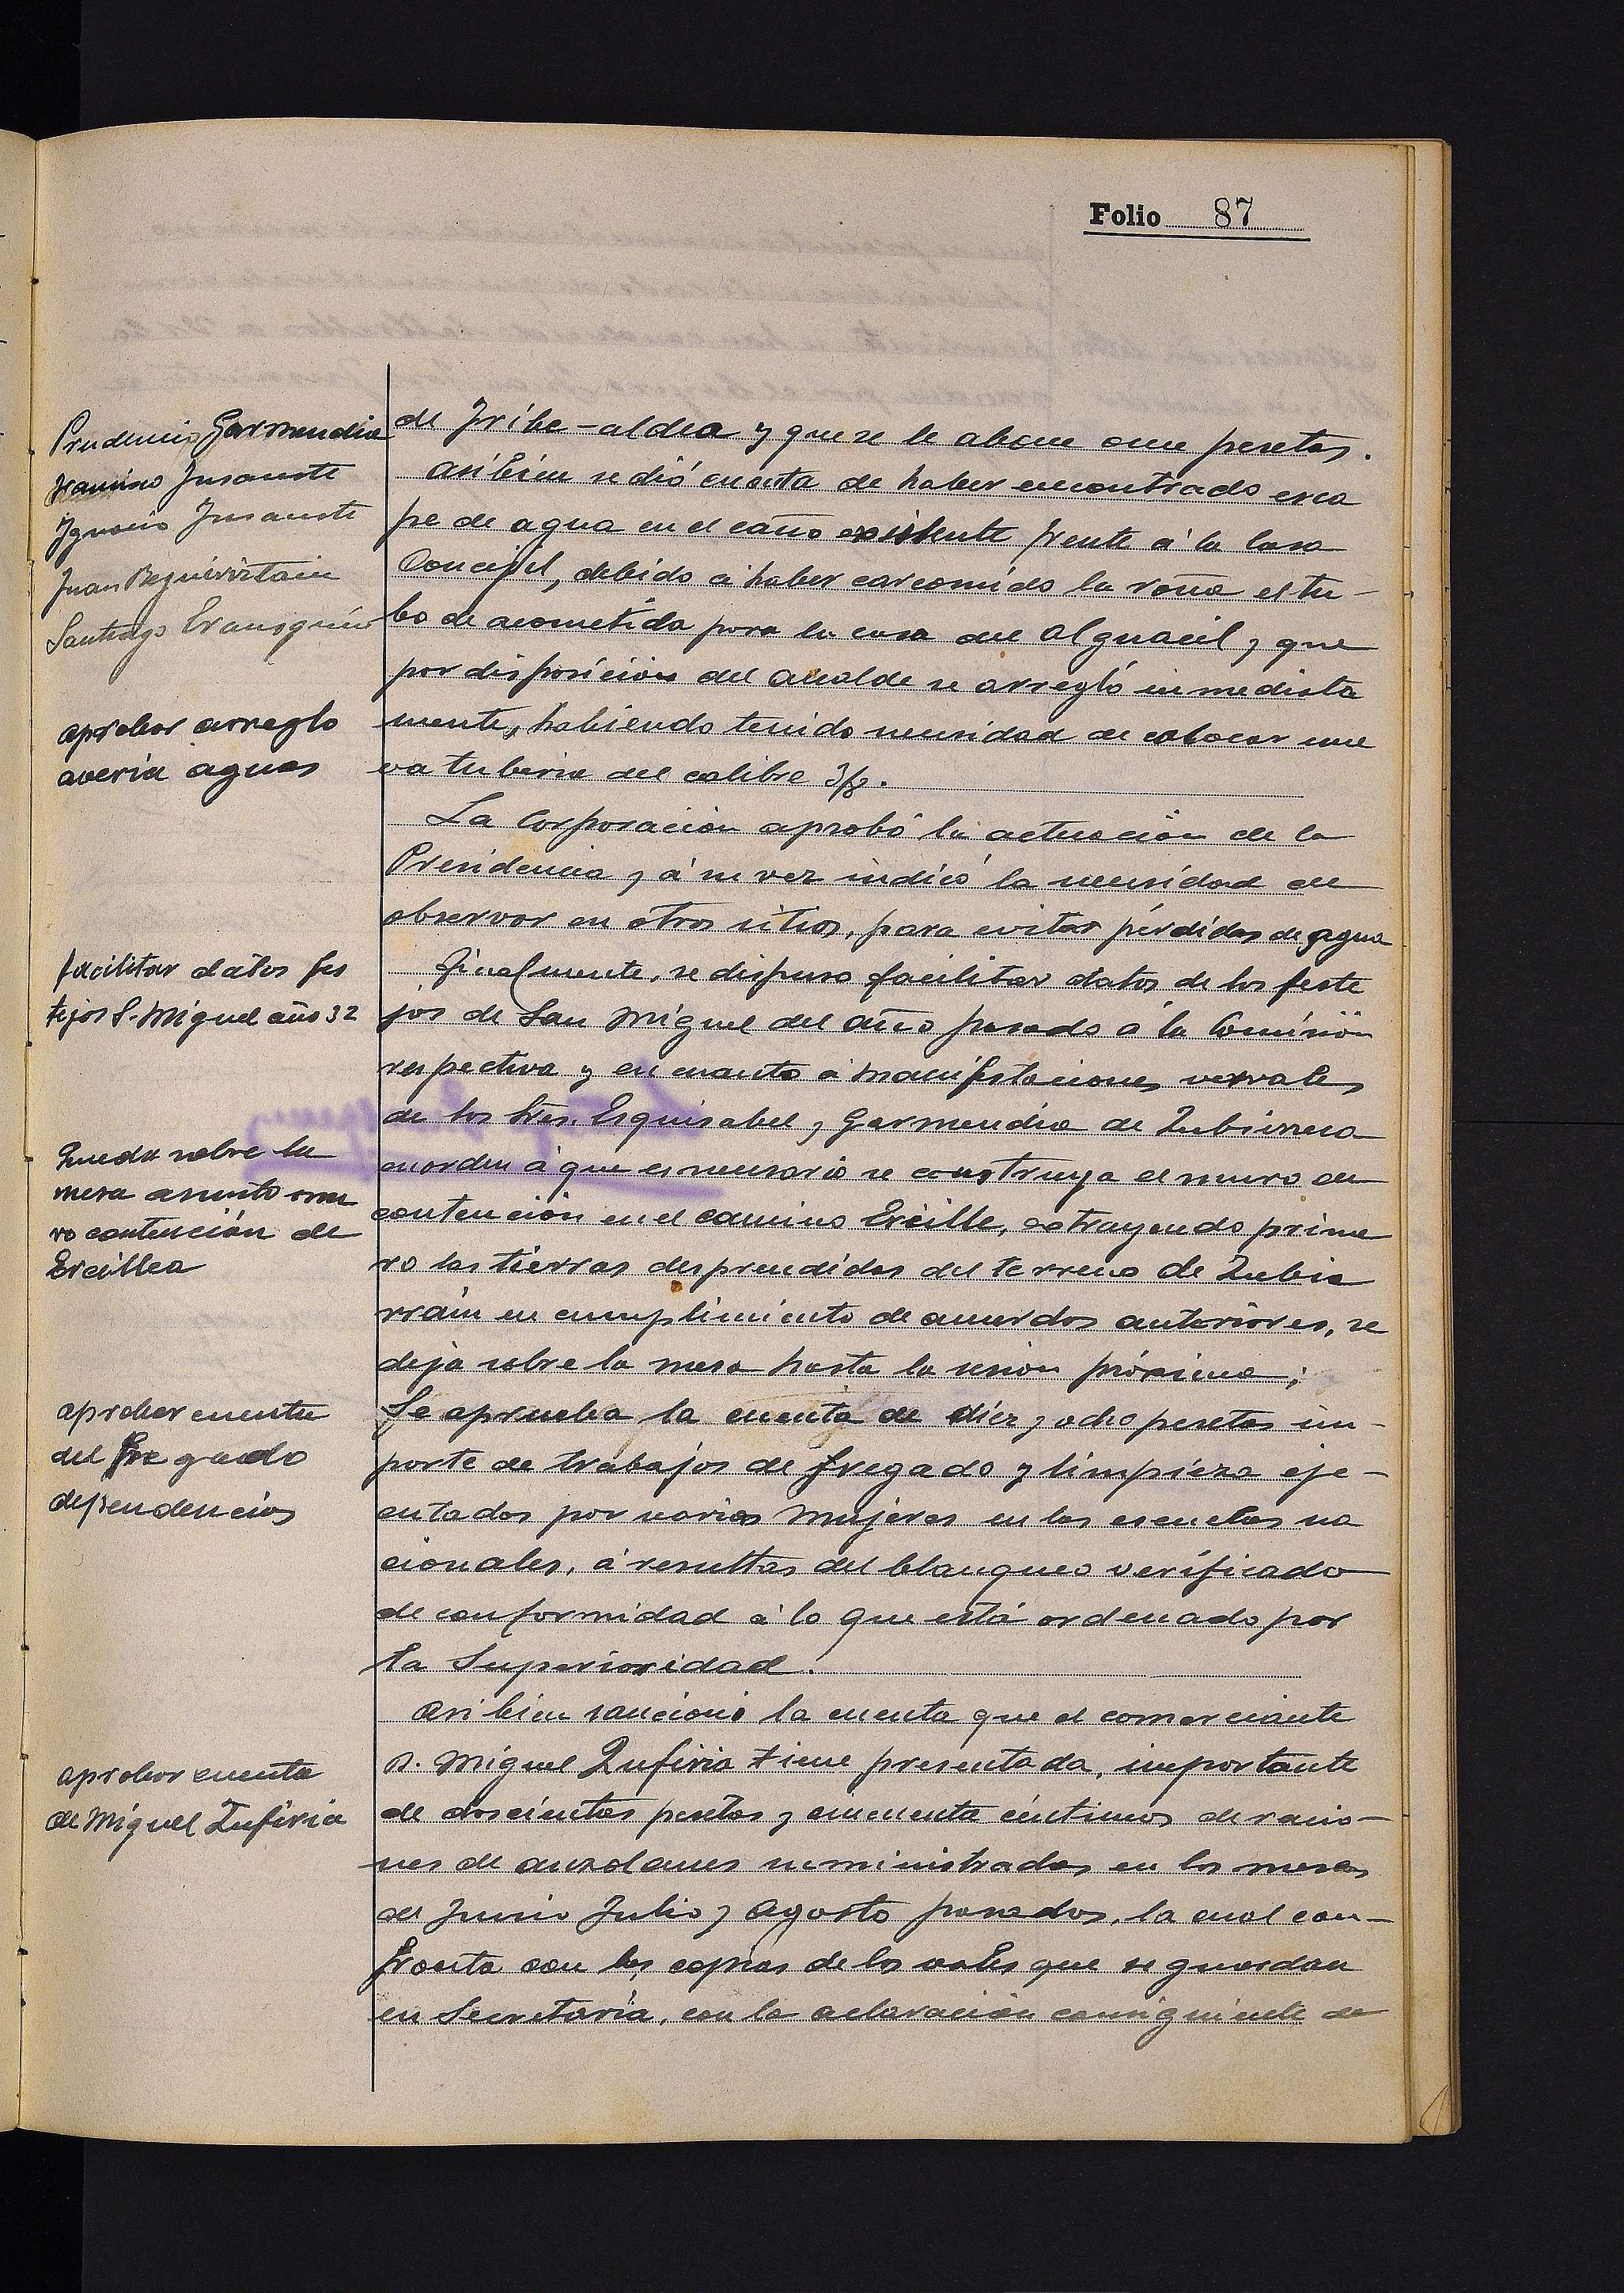 Folio 87
Prudencio Garmendia
Francisco Insausti
Ignacio Insausti
Juan Beguiristain
Santiago Erausquin
aprobar arreglo
averia aguas
facilitar datos fes
tejos S. Miguel año 32
Queda sobre la
mesa asunto mu
ro contención de
Ercilla
aprobar cuenta
del fregado
dependencias
aprobar cuenta
de Miguel Zufiria
de Iribe-aldea y que se le abone once pesetas.
Asibien se dió cuenta de haber encontrado esca
pe de agua en el caño existente frente á la Casa
Concejil, debido á haber carcomido la roña el tu-
bo de acometida para la casa del Alguacil, y que
por disposición del Alcalde se arregló inmediata
mente, habiendo tenido necesidad de colocar nue
va tuberia del calibre 3/8.
La Corporación aprobó la actuación de la
Presidencia y á su vez indicó la necesidad de
observar en otros sitios, para evitar pérdidas de agua
Finalmente, se dispuso facilitar datos de los feste
jos de San Miguel del año pasado á la Comisión
respectiva y en cuanto á manifestaciones vervales
de los Sres. Esquisabel y Garmendia de
en orden á que es necesario se construya el muro de
contención en el camino Ercilla, extrayendo prime
ro las tierras desprendidas del terreno de Zubia
rrain en cumplimiento de acuerdos anteriores, se
deja sobre la mesa hasta la sesion próxima;
Se aprueba la cuenta de diez y ocho pesetas im-
porte de trabajos de fregado y limpieza eje-
cutados por varias mujeres en las escuelas na
cionales, á resultas del blanqueo verificado
de conformidad á lo que está ordenado por
la Superioridad.
Asibien sancionó la cuenta que el comerciante
D. Miguel Zufiria tiene presentada, importante
de doscientas pesetas y cincuenta céntimos de racio-
nes de suministradas en los meses
de Junio Julio y Agosto pasados, la cual con-
fronta con las copias de los vales que se guardan
en Secretaría, con la aclaración consiguiente de